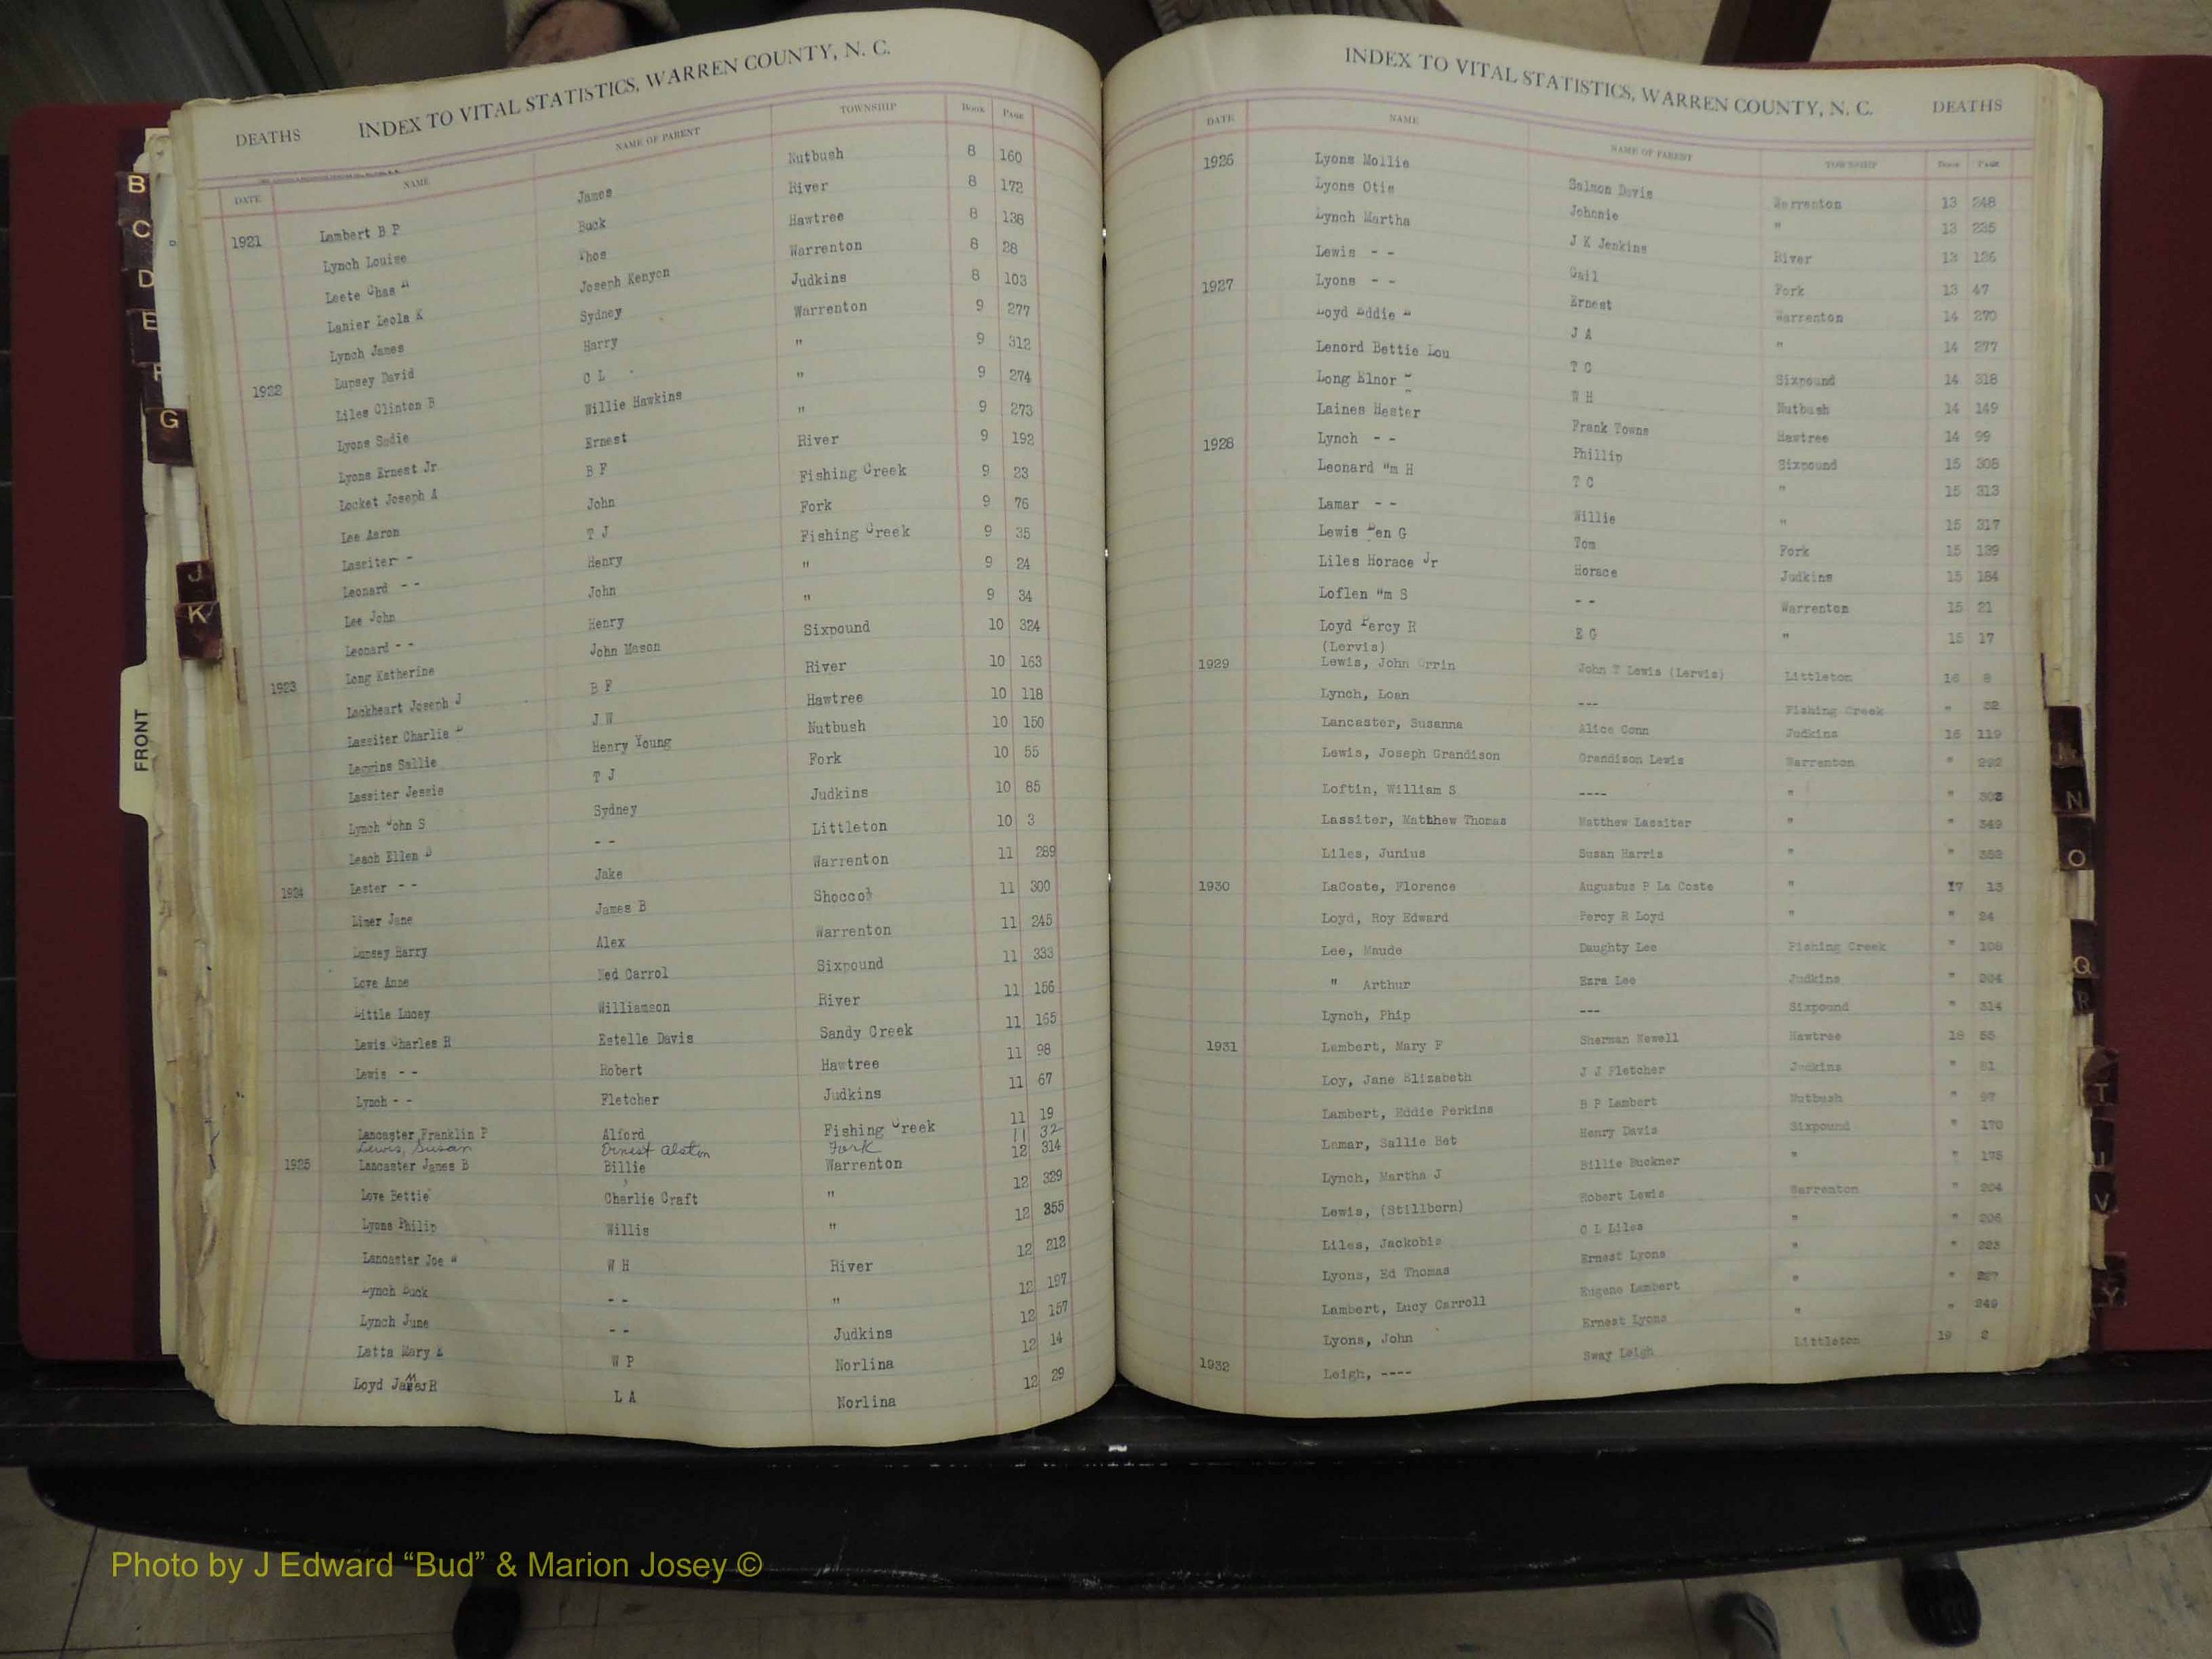 DEATHS INDEX TO VITAL STATISTICS, WARREN COUNTY, N. C.
DATE NAME NAME OF PARENT TOWNSHIP Book Page
1921 Lambert B P James Nutbush 8 160
Lynch Louise Buck River 8 172
Leete Chas H Thos Hawtree 8 138
Lanier Leola K Joseph Kenyon Warrenton 8 28
Lynch James Sydney Judkins 8 103
1922 Lupsey David Harry Warrenton 9 277
Liles Clinton B C L " 9 312
Lyons Sadie Willie Hawkins " 9 274
Lyons Ernest Jr Ernest " 9 273
Locket Joseph A B F River 9 192
Lee Aaron John Fishing Creek 9 23
Lassiter - T J Fork 9 76
Leonard - - Henry Fishing Creek 9 35
Lee John John " 9 24
Leonard - - Henry " 9 34
1923 Long Katherine John Mason Sixpound 10 324
Lockheart Joseph J B F River 10 163
Lassiter Charlie B J W Hawtree 10 118
Sallie Henry Young Nutbush 10 150
Lassiter Jessie T J Fork 10 55
Lynch John S Sydney Judkins 10 85
Leach Ellen D - - Littleton 10 3
1924 Lester - - Jake Warrenton 11 289
Limer Jane James B Shocco 11 300
Lupsey Harry Alex Warrenton 11 245
Love Anne Ned Carrol Sixpound 11 333
Little Lucey Williamson River 11 156
Lewis Charles R Estelle Davis Sandy Creek 11 165
Lewis - - Robert Hawtree 11 98
Lynch - - Fletcher Judkins 11 67
Lancaster Franklin P Alford Fishing Creek 11 19
Lewis, Susan Ernest Alston Fork 11 32
1925 Lancaster James B Billie Warrenton 12 314
Love Bettie Charlie Craft " 12 329
Lyons Philip Willis " 12 355
Lancaster Joe W H River 12 212
Lynch Buck - - " 12 197
Lynch June - - Judkins 12 157
Latta Mary E W P Norlina 12 14
Loyd James R L A Norlina 12 29
INDEX TO VITAL STATISTICS, WARREN COUNTY, N. C. DEATHS
DATE NAME NAME OF PARENT TOWNSHIP Book Page
1926 Lyons Mollie Salmon Davis Warrenton 13 248
Lyons Otis Johnnie " 13 235
Lynch Martha J K Jenkins River 13 126
Lewis - - Gail Fork 13 47
1927 Lyons - - Ernest Warrenton 14 270
Loyd Eddie J A " 14 277
Lenord Bettie Lou T C Sixpound 14 318
Long Elnor W H Nutbush 14 149
Laines Hester Frank Towns Hawtree 14 99
1928 Lynch - - Phillip Sixpound 15 308
Leonard Wm H T C " 15 313
Lamar - - Willie " 15 317
Lewis Ben G Tom Fork 15 139
Liles Horace Jr Horace Judkins 15 184
Loflen Wm S - - Warrenton 15 21
Loyd Percy R E G " 15 17
(Lervis)
1929 Lewis, John Orrin John T Lewis (Lervis) Littleton 16 8
Lynch, Loan --- Fishing Creek " 32
Lancaster, Susanna Alice Conn Judkins 16 119
Lewis, Joseph Grandison Grandison Lewis Warrenton " 292
Loftin, William S ---- " "
Lassiter, Matthew Thomas Matthew Lassiter " " 349
Liles, Junius Susan Harris " "
1930 LaCoste, Florence Augustus P La Coste " 17 13
Loyd, Roy Edward Percy R Loyd " " 24
Lee, Maude Daughty Lee Fishing Creek " 108
" Arthur Ezra Lee Judkins " 204
Lynch, Phip --- Sixpound " 314
1931 Lambert, Mary F Sherman Newell Hawtree 18 55
Loy, Jane Elizabeth J J Fletcher Judkins " 81
Lambert, Eddie Perkins B P Lambert Nutbush " 97
Lamar, Sallie Bet Henry Davis Sixpound " 170
Lynch, Martha J Billie Buckner " " 175
Lewis, (Stillborn) Robert Lewis Warrenton " 204
Liles, Jackobie C L Liles " " 206
Lyons, Ed Thomas Ernest Lyons " " 223
Lambert, Lucy Carroll Eugene Lambert " "
Lyons, John Ernest Lyons " " 249
1932 Leigh, ---- Sway Leigh Littleton 19 2
B
C
D
E
F
G
J
K
FRONT
N
O
Q
R
T
U
V
Y
Photo by J Edward “Bud” & Marion Josey ©